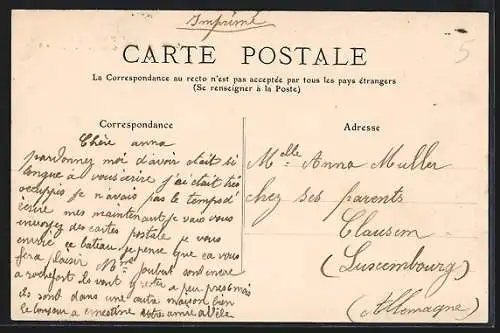 Imprimé
5
CARTE POSTALE
La Correspondance au recto n'est pas acceptée par tous les pays étrangers
(Se renseigner à la Poste)
Correspondance
Adresse
Chère anna
pardonnez moi d'avoir était si
longue a vous écrire j'ai était très
occupés je n'avais pas le temps d'
écrire mes maintenant je vais vous
envoyez des cartes postale je vous
envoie ce bateau je pense que ca vous
fera plaisir Mme Joubert sont encore
a rochefort ils vont y rester a peu pres 1 mois
ils sont dans une autre maison bien
le bonjour a ernestine votre amie adèle
Melle Anna Muller
chez ses parents
Clausem
(Luxembourg)
(Allemagne)